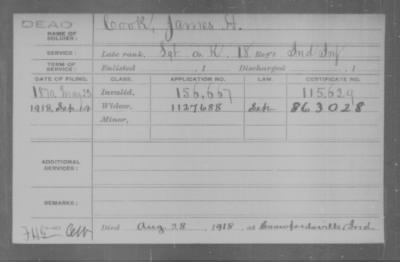 DEAD
NAME OF SOLDIER: Cook, James A.
SERVICE: Late rank, Sgt Co. K, 18 Reg't Ind Inf
TERM OF SERVICE: Enlisted , 1 Discharged , 1
DATE OF FILING. CLASS. APPLICATION NO. LAW. CERTIFICATE NO.
1870 May 23 Invalid, 156,667 115,629
1918, Sep. Widow, 1127688 863028
Minor,
ADDITIONAL SERVICES:
REMARKS:
Died Aug 28, 1918, at Crawfordsville, Ind